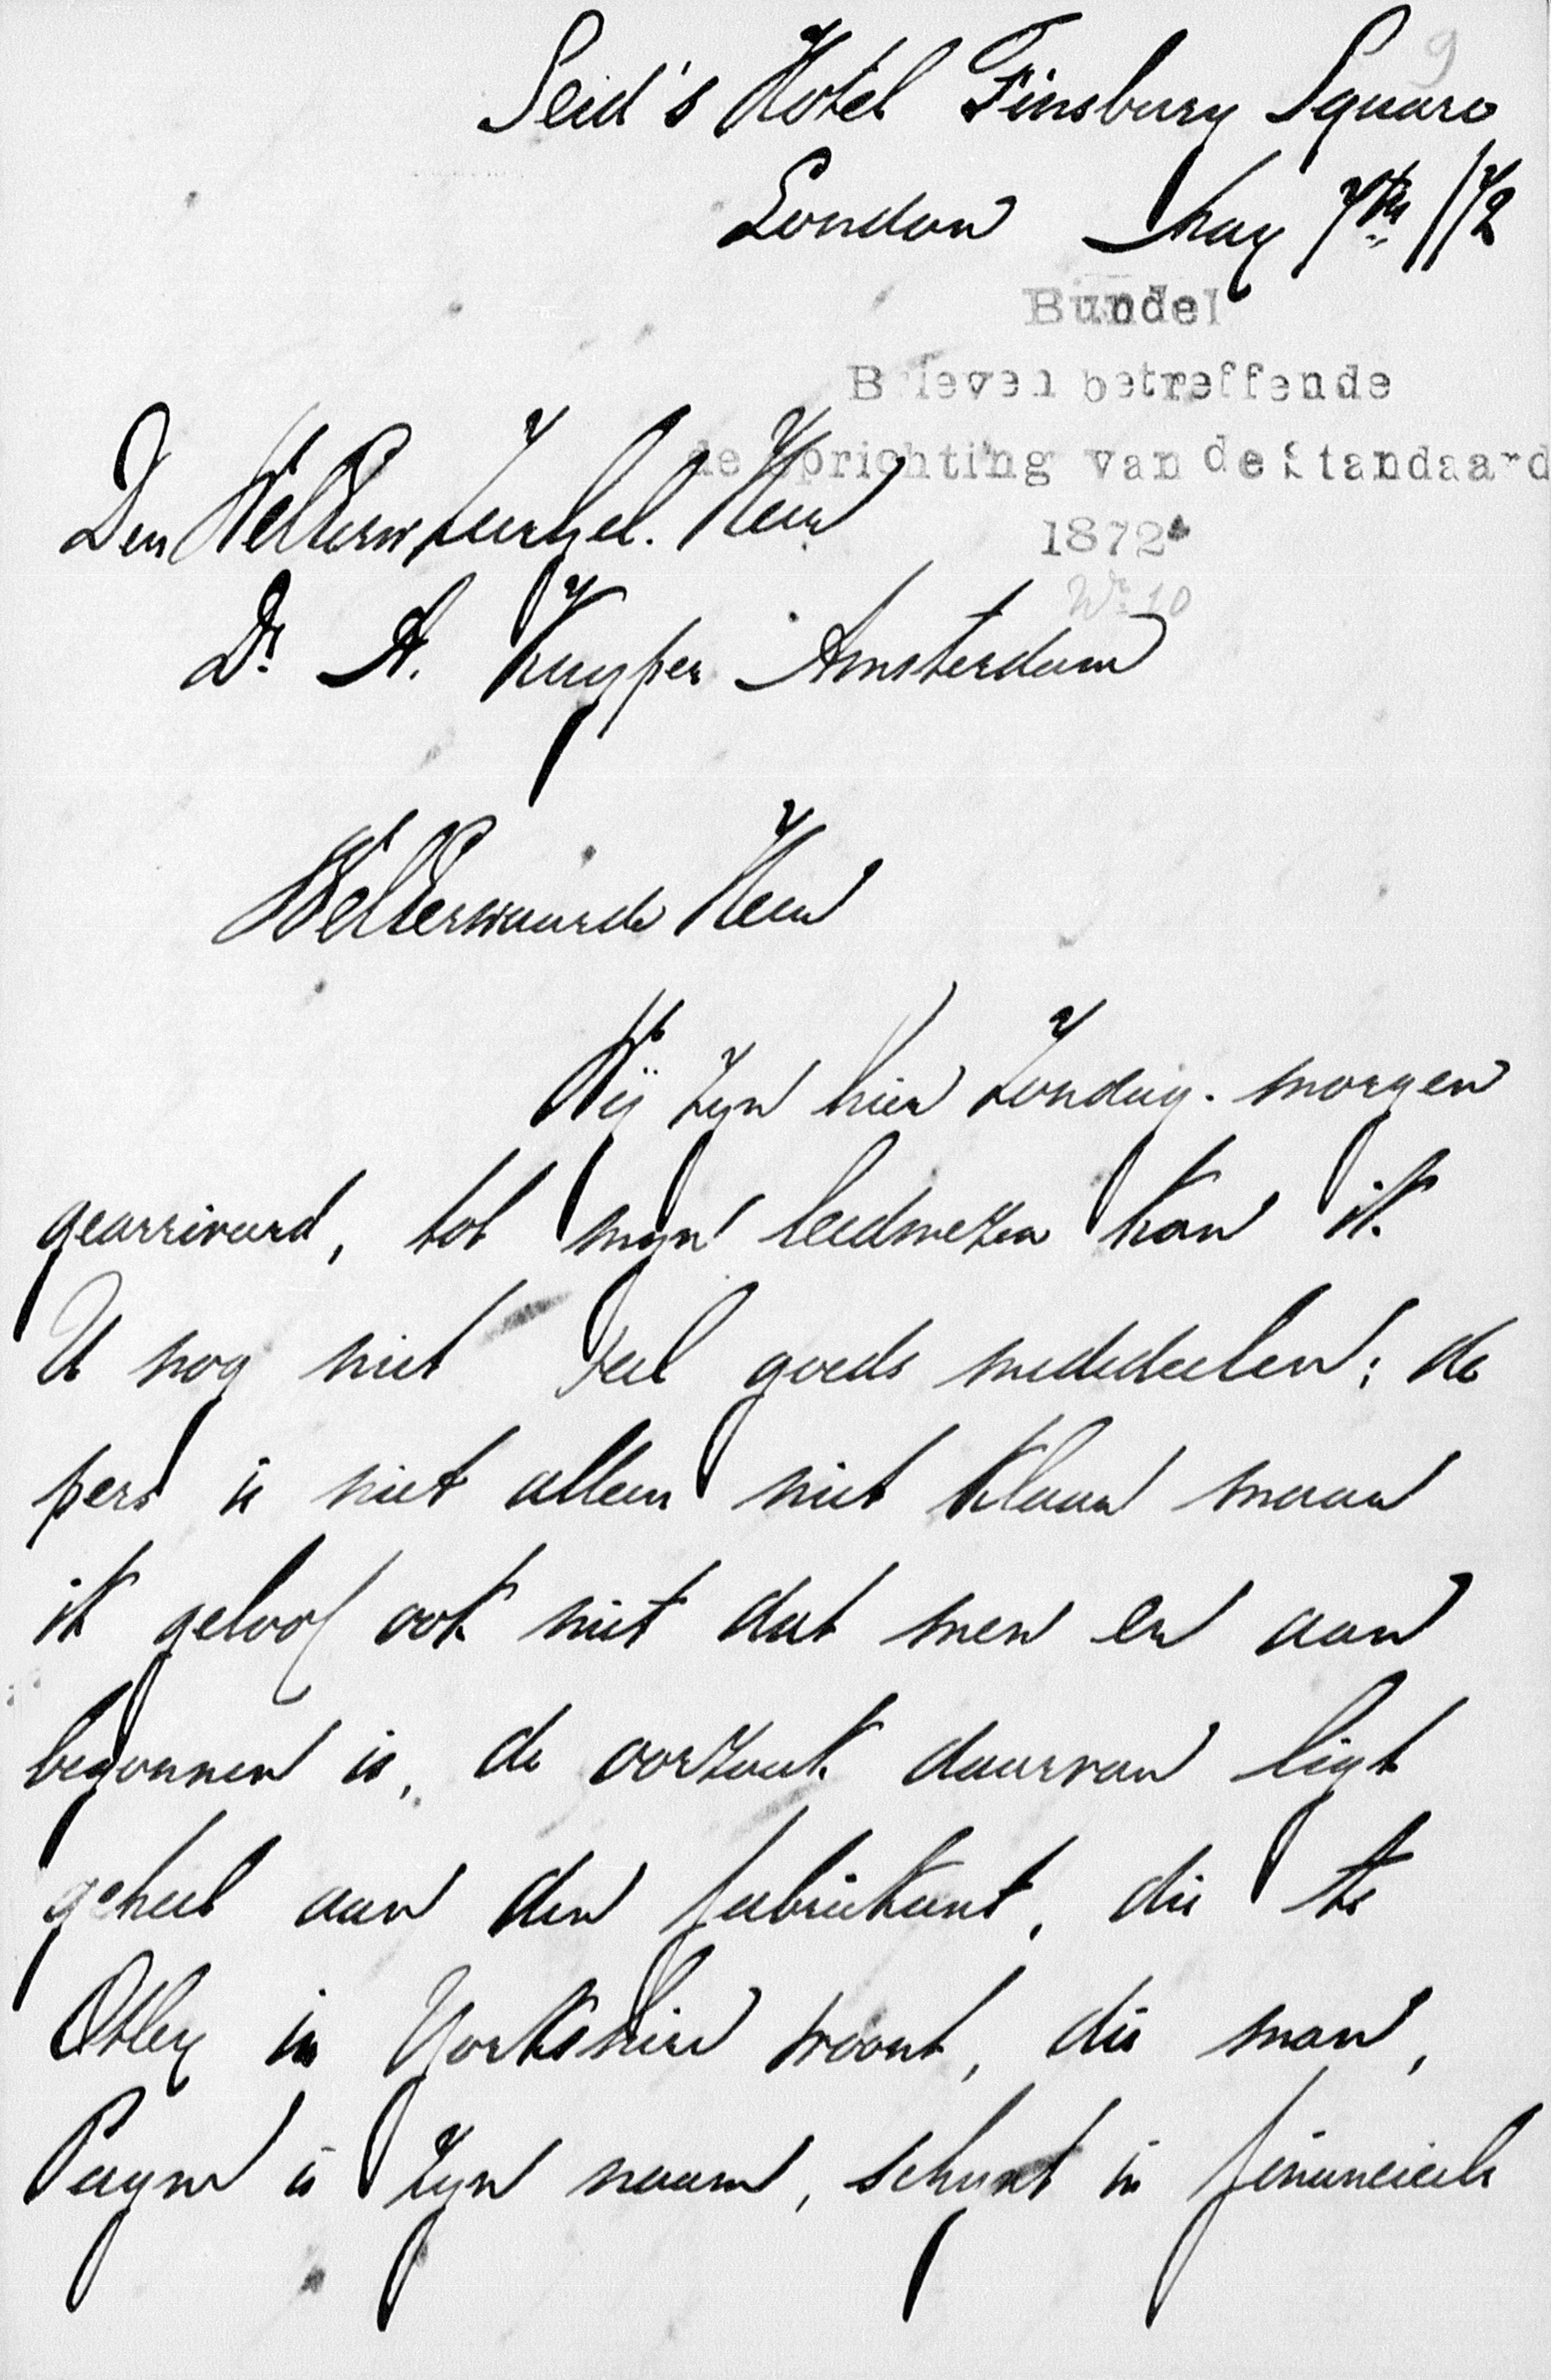 9
Seid's Hotel Finsbury Square
London May 7th /72
Bundel
Brieven betreffende
de oprichting van de Standaard
1872
No 10
Den WelEerw. Heer
Dr. A. Kuyper Amsterdam
WelEerwaarde Heer
Wij zyn hier Zondag-morgen
gearriveerd, tot myn leedwezen kan ik
U nog niet veel goeds mededeelen; de
pers is niet alleen niet klaar maar
ik geloof ook niet dat men er aan
begonnen is, de oorzaak daarvan ligt
geheel aan den fabrikant, die te
Otley in Yorkshire woont, die man,
Payne is zyn naam, schynt in financieele